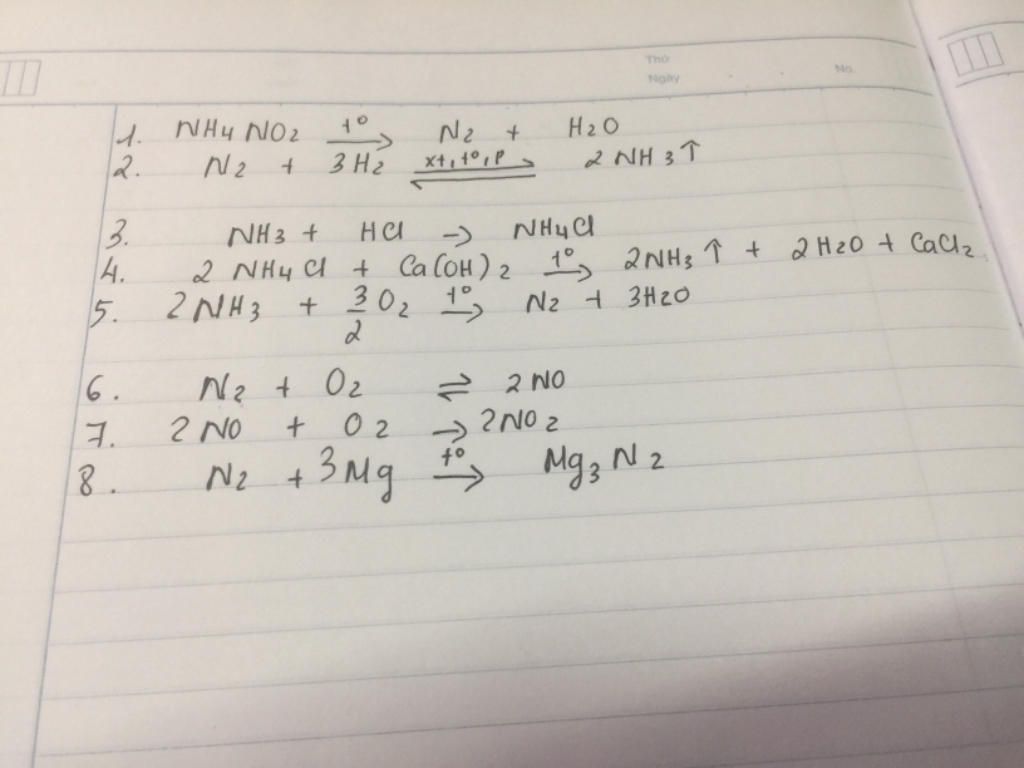 Thứ
Ngày
No.
1. NH4NO2 t° → N2 + H2O
2. N2 + 3H2 xt,t°,P ⇌ 2NH3↑
3. NH3 + HCl → NH4Cl
4. 2NH4Cl + Ca(OH)2 t° → 2NH3↑ + 2H2O + CaCl2
5. 2NH3 + 3/2 O2 t° → N2 + 3H2O
6. N2 + O2 ⇌ 2NO
7. 2NO + O2 → 2NO2
8. N2 + 3Mg t° → Mg3N2